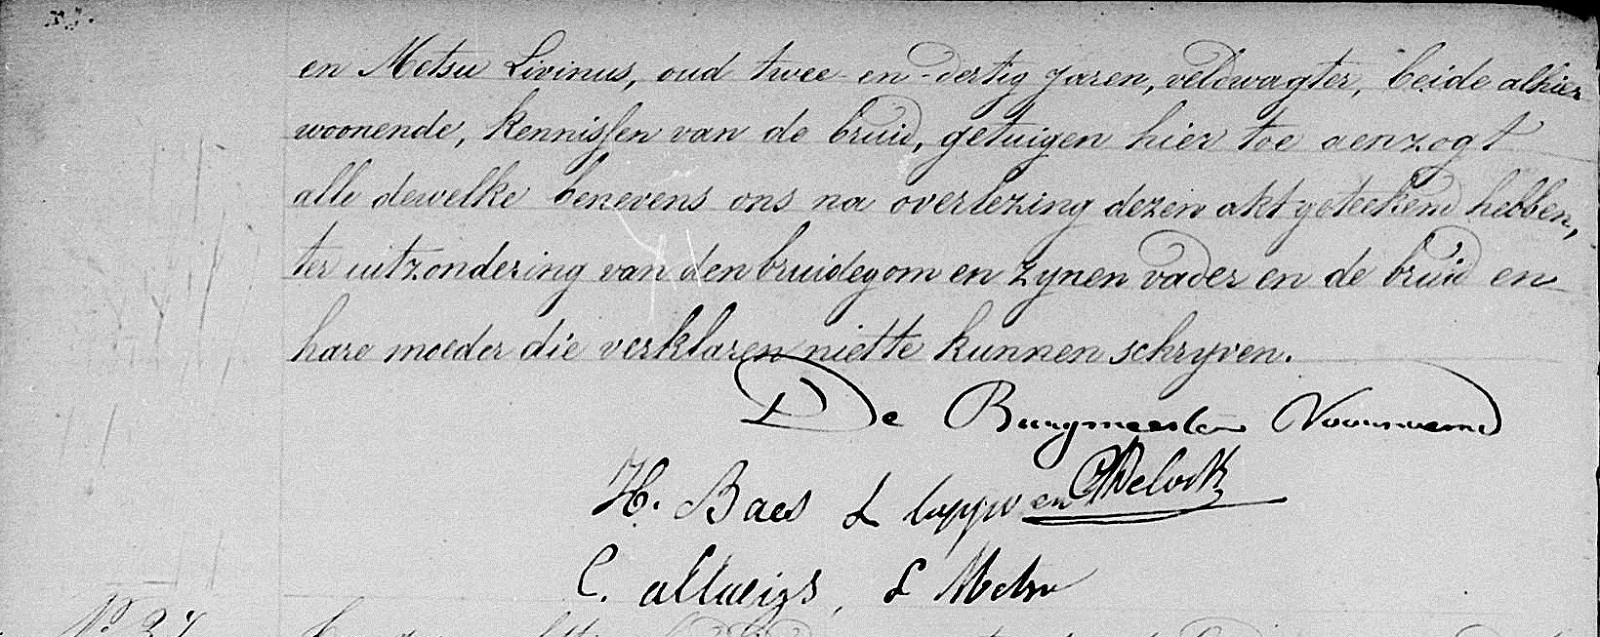 en Metsu Livinus, oud twee-en-dertig jaren, veldwagter, beide alhier
woonende, kennissen van de bruid, getuigen hier toe aenzogt
alle dewelke benevens ons na overlezing dezen akt geteekend hebben,
ter uitzondering van den bruidegom en zynen vader en de bruid en
hare moeder die verklaren niet te kunnen schryven.
De Burgmeester Voornoemd
H. Baes L en
C. L Metsu
No 37